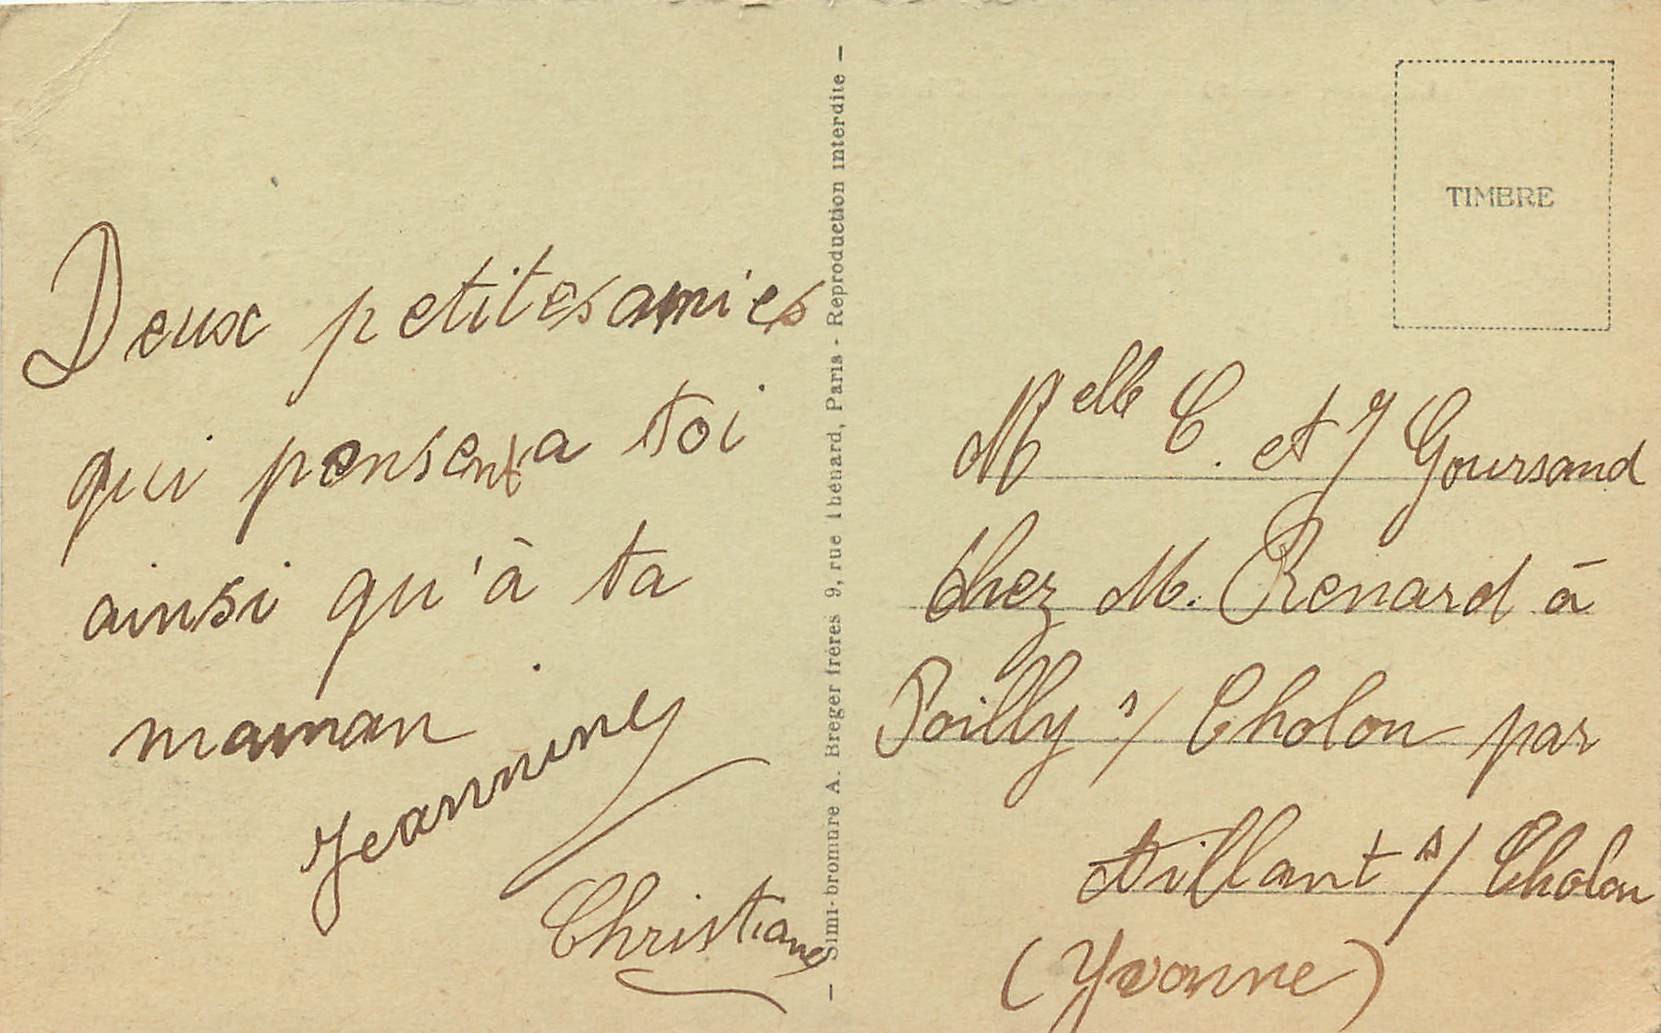 Deux petites amies
qui pensent a toi
ainsi qu'à ta
maman
Jeannine
Christiane
Simi-bromure A. Breger frères 9, rue Thénard, Paris - Reproduction interdite -
TIMBRE
Melle C. et J Goursand
chez M. Renard à
Poilly s/ Tholon par
Aillant s/ Tholon
(Yvonne)